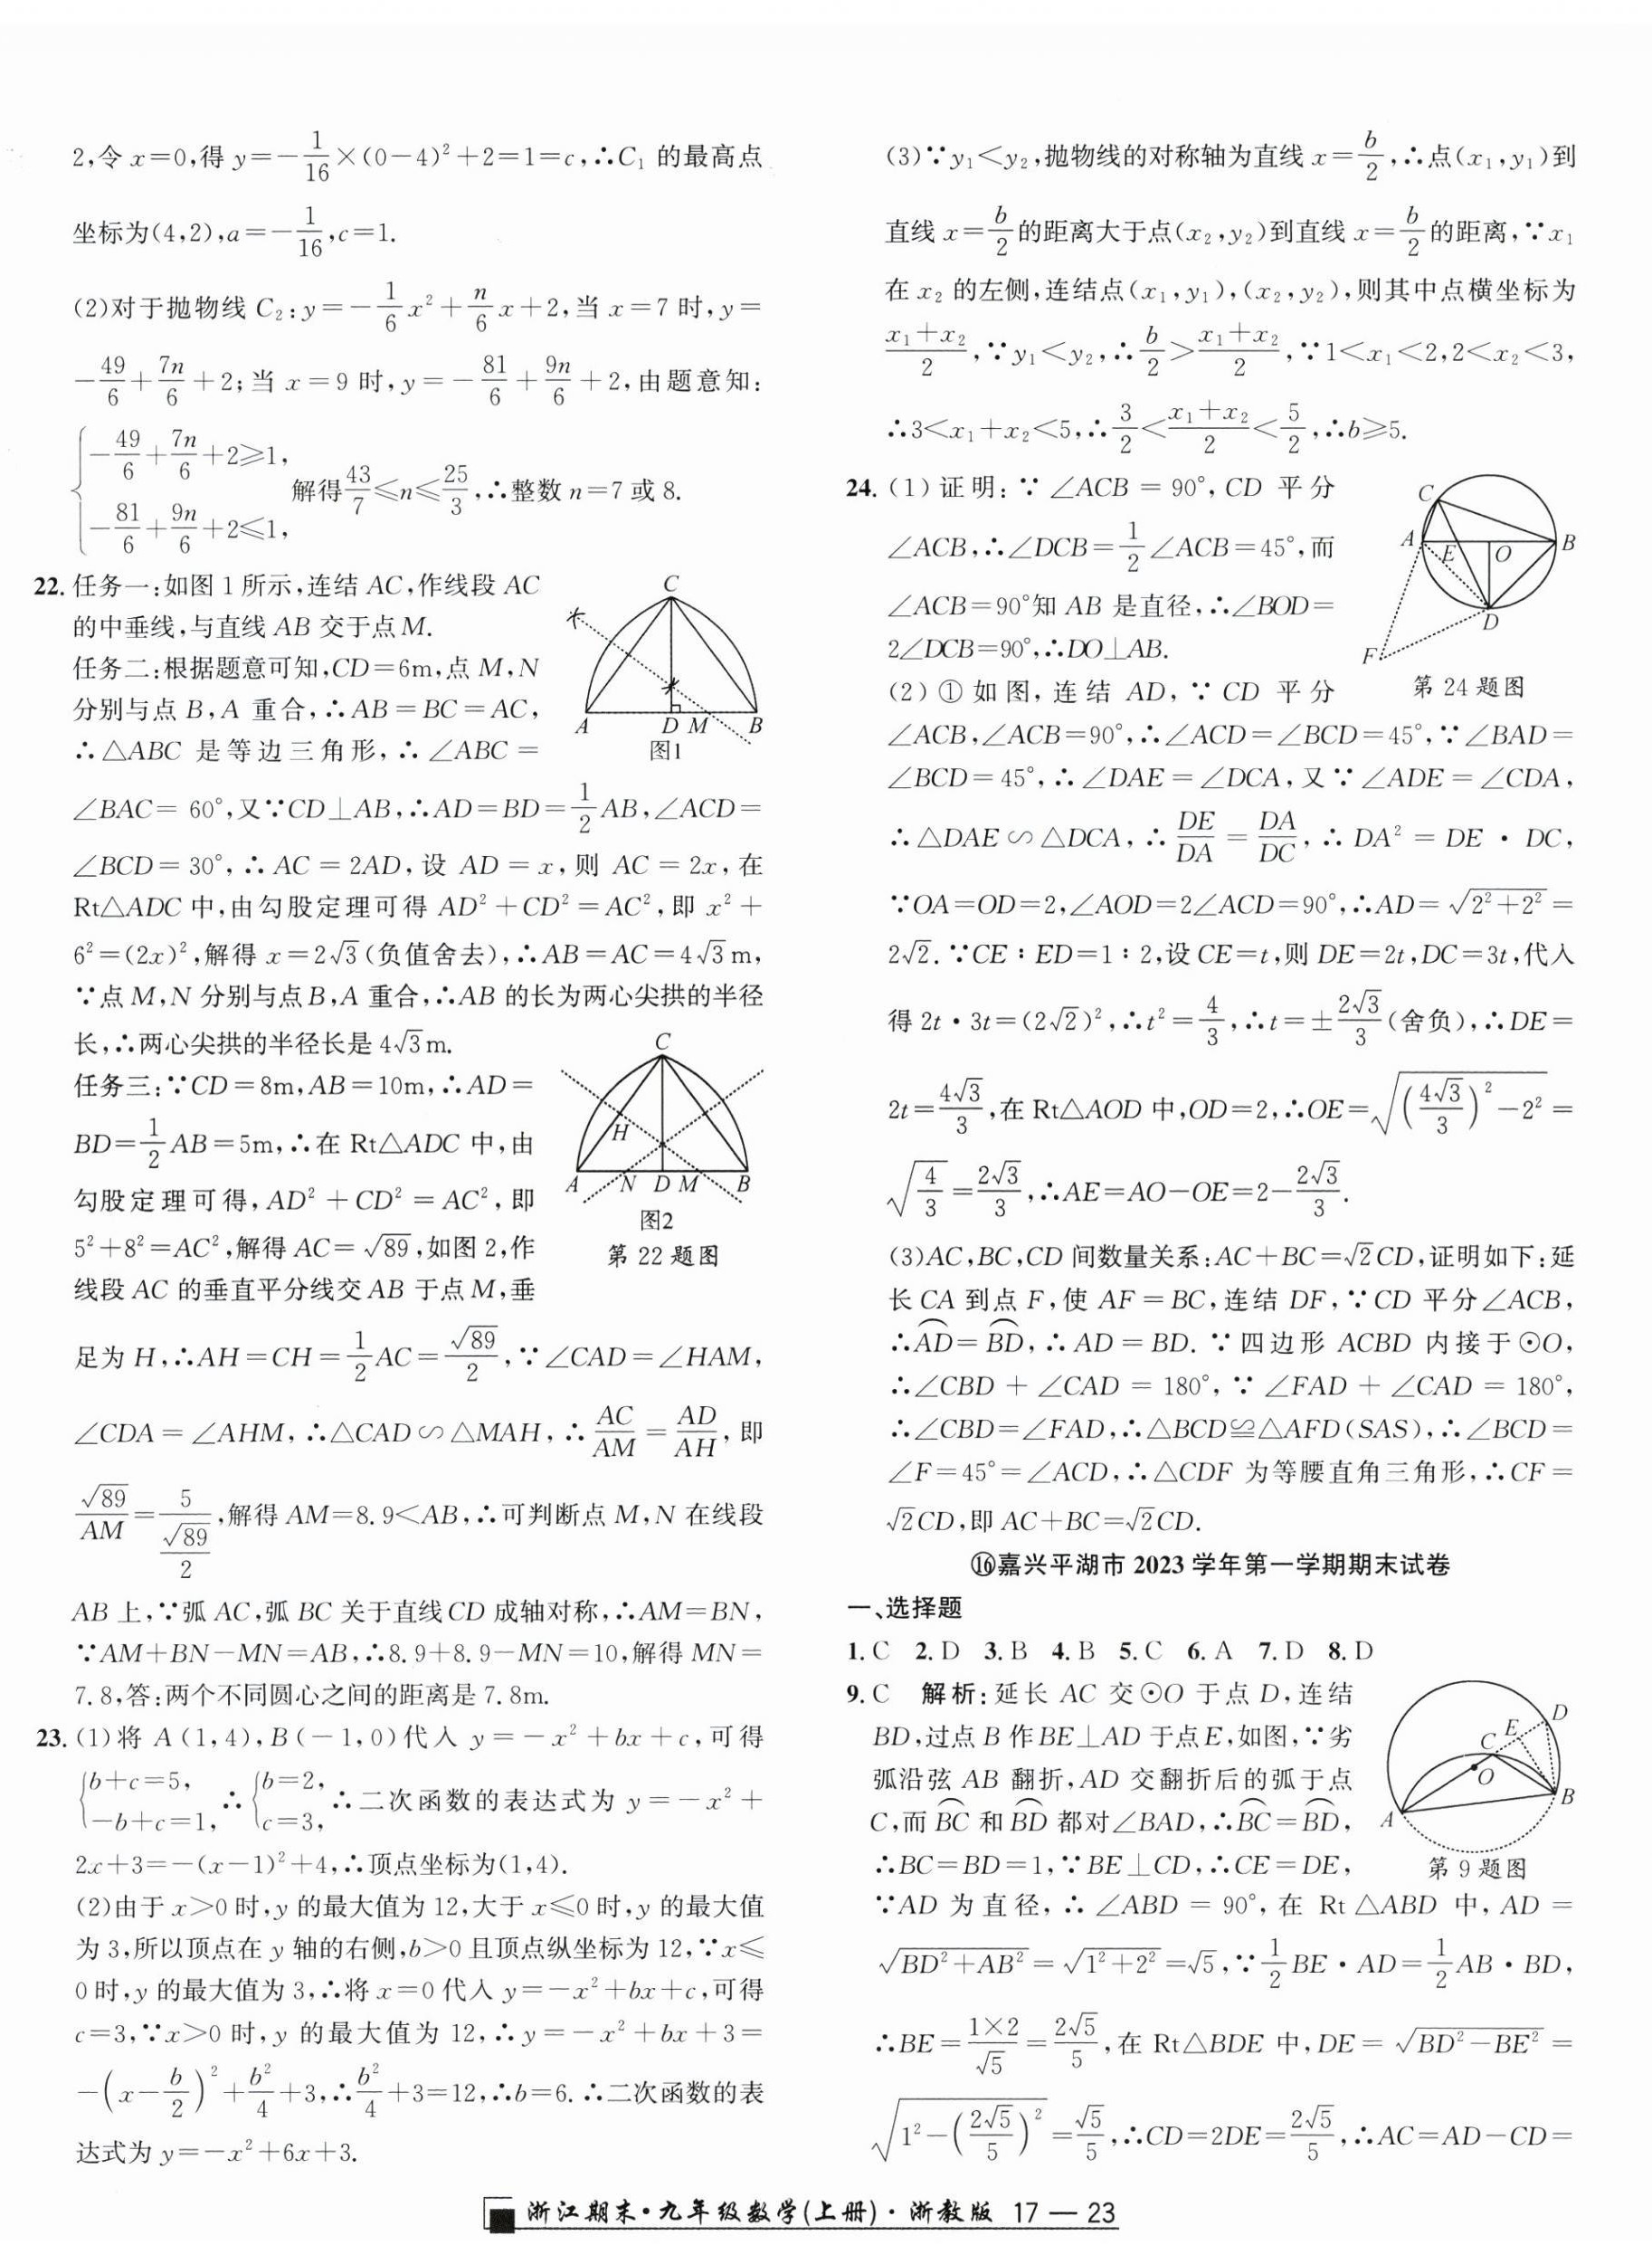 2,令 x=0,得 y=-1/16×(0-4)²+2=1=c,∴C₁ 的最高点
坐标为(4,2),a=-1/16,c=1.
(2)对于抛物线 C₂:y=-1/6x²+n/6x+2,当 x=7 时,y=
-49/6+7n/6+2;当 x=9 时,y=-81/6+9n/6+2,由题意知:
{-49/6+7n/6+2≥1,
-81/6+9n/6+2≤1, 解得43/7≤n≤25/3,∴整数 n=7 或 8.
22.任务一:如图 1 所示,连结 AC,作线段 AC
的中垂线,与直线 AB 交于点M.
任务二:根据题意可知,CD=6m,点 M,N
分别与点 B,A 重合,∴AB=BC=AC,
∴△ABC 是等边三角形,∴∠ABC=
C
A
D
M
B
图1
∠BAC=60°,又∵CD⊥AB,∴AD=BD=1/2AB,∠ACD=
∠BCD=30°,∴AC=2AD,设 AD=x,则 AC=2x,在
Rt△ADC 中,由勾股定理可得 AD²+CD²=AC²,即 x²+
6²=(2x)²,解得 x=2√3(负值舍去),∴AB=AC=4√3m,
∵点 M,N 分别与点B,A 重合,∴AB 的长为两心尖拱的半径
长,∴两心尖拱的半径长是 4√3m.
任务三:∵CD=8m,AB=10m,∴AD=
BD=1/2AB=5m,∴在 Rt△ADC 中,由
勾股定理可得,AD²+CD²=AC²,即
5²+8²=AC²,解得 AC=√89,如图 2,作
线段 AC 的垂直平分线交 AB 于点 M,垂
C
H
A
N
D
M
B
图2
第 22 题图
足为 H,∴AH=CH=1/2AC=√89/2,∵∠CAD=∠HAM,
∠CDA=∠AHM,∴△CAD∽△MAH,∴AC/AM=AD/AH,即
√89/AM=5/(√89/2),解得 AM=8.9<AB,∴可判断点 M,N 在线段
AB 上,∵弧 AC,弧 BC 关于直线CD 成轴对称,∴AM=BN,
∵AM+BN-MN=AB,∴8.9+8.9-MN=10,解得 MN=
7.8,答:两个不同圆心之间的距离是 7.8m.
23.(1)将 A(1,4),B(-1,0)代入 y=-x²+bx+c,可得
{b+c=5, -b+c=1, ∴{b=2, c=3, ∴二次函数的表达式为 y=-x²+
2x+3=-(x-1)²+4,∴顶点坐标为(1,4).
(2)由于 x>0 时,y 的最大值为 12,大于 x≤0 时,y 的最大值
为 3,所以顶点在 y 轴的右侧,b>0 且顶点纵坐标为 12,∵x≤
0 时,y 的最大值为 3,∴将 x=0 代入 y=-x²+bx+c,可得
c=3,∵x>0 时,y 的最大值为 12,∴y=-x²+bx+3=
-(x-b/2)²+b²/4+3,∴b²/4+3=12,∴b=6.∴二次函数的表
达式为 y=-x²+6x+3.
(3)∵y₁<y₂,抛物线的对称轴为直线 x=b/2,∴点(x₁,y₁)到
直线 x=b/2的距离大于点(x₂,y₂)到直线 x=b/2的距离,∵x₁
在 x₂ 的左侧,连结点(x₁,y₁),(x₂,y₂),则其中点横坐标为
(x₁+x₂)/2,∵y₁<y₂,∴b/2>(x₁+x₂)/2,∵1<x₁<2,2<x₂<3,
∴3<x₁+x₂<5,∴3/2<(x₁+x₂)/2<5/2,∴b≥5.
24.(1)证明:∵∠ACB=90°,CD 平分
∠ACB,∴∠DCB=1/2∠ACB=45°,而
∠ACB=90°知 AB 是直径,∴∠BOD=
2∠DCB=90°,∴DO⊥AB.
(2)①如图,连结 AD,∵CD 平分
C
A
E
O
B
D
F
第 24 题图
∠ACB,∠ACB=90°,∴∠ACD=∠BCD=45°,∵∠BAD=
∠BCD=45°,∴∠DAE=∠DCA,又∵∠ADE=∠CDA,
∴△DAE∽△DCA,∴DE/DA=DA/DC,∴DA²=DE·DC,
∵OA=OD=2,∠AOD=2∠ACD=90°,∴AD=√(2²+2²)=
2√2.∵CE:ED=1:2,设 CE=t,则 DE=2t,DC=3t,代入
得 2t·3t=(2√2)²,∴t²=4/3,∴t=±2√3/3(舍负),∴DE=
2t=4√3/3,在 Rt△AOD 中,OD=2,∴OE=√((4√3/3)²-2²)=
√(4/3)=2√3/3,∴AE=AO-OE=2-2√3/3.
(3)AC,BC,CD 间数量关系:AC+BC=√2CD,证明如下:延
长 CA 到点 F,使 AF=BC,连结 DF,∵CD 平分∠ACB,
∴A͡D=B͡D,∴AD=BD.∵四边形 ACBD 内接于⊙O,
∴∠CBD+∠CAD=180°,∵∠FAD+∠CAD=180°,
∴∠CBD=∠FAD,∴△BCD≌△AFD(SAS),∴∠BCD=
∠F=45°=∠ACD,∴△CDF 为等腰直角三角形,∴CF=
√2CD,即 AC+BC=√2CD.
⑯嘉兴平湖市 2023 学年第一学期期末试卷
一、选择题
1.C 2.D 3.B 4.B 5.C 6.A 7.D 8.D
9.C 解析:延长 AC 交⊙O 于点 D,连结
BD,过点 B 作BE⊥AD 于点E,如图,∵劣
弧沿弦 AB 翻折,AD 交翻折后的弧于点
C,而 B͡C 和 B͡D 都对∠BAD,∴B͡C=B͡D,
∴BC=BD=1,∵BE⊥CD,∴CE=DE,
D
E
C
O
A
B
第 9 题图
∵AD 为直径,∴∠ABD=90°,在 Rt△ABD 中,AD=
√(BD²+AB²)=√(1²+2²)=√5,∵1/2BE·AD=1/2AB·BD,
∴BE=(1×2)/√5=2√5/5,在 Rt△BDE 中,DE=√(BD²-BE²)=
√(1²-(2√5/5)²)=√5/5,∴CD=2DE=2√5/5,∴AC=AD-CD=
浙江期末·九年级数学(上册)·浙教版 17—23